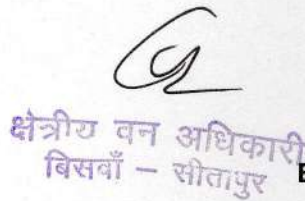 क्षेत्रीय वन अधिकारी
बिसवाँ – सीतापुर